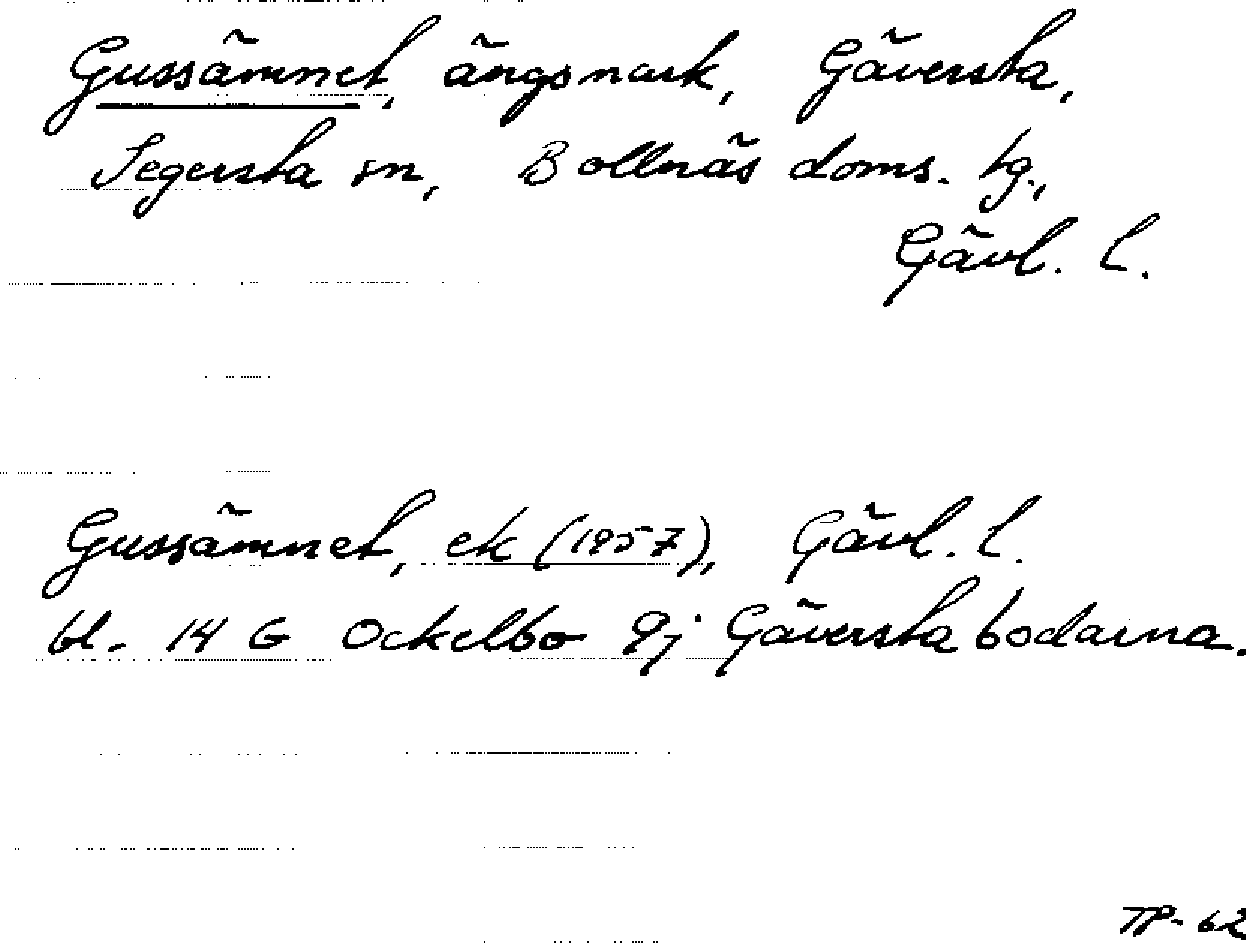 Gussämnet, ängsmark, Gäversta,
Segersta sn, Bollnäs doms. tg.,
Gävl. l.
Gussämnet, ek (1957), Gävl. l.
bl. 14 G Ockelbo 9j Gäverstabodarna.
TP-62